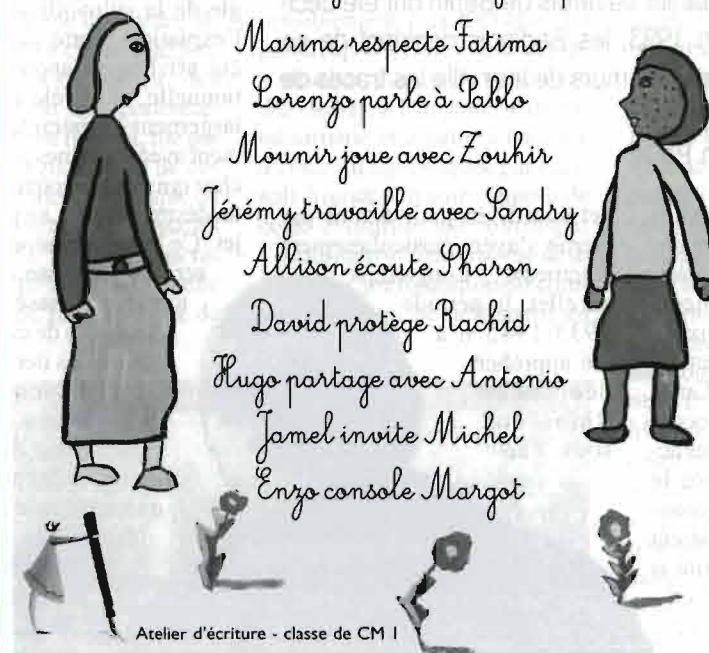 Marina respecte Fatima
Lorenzo parle à Pablo
Mounir joue avec Zouhir
Jérémy travaille avec Sandry
Allison écoute Sharon
David protège Rachid
Hugo partage avec Antonio
Jamel invite Michel
Enzo console Margot
Atelier d'écriture - classe de CM 1